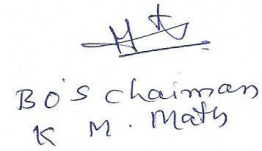 BO'S Chairman
K M. Math